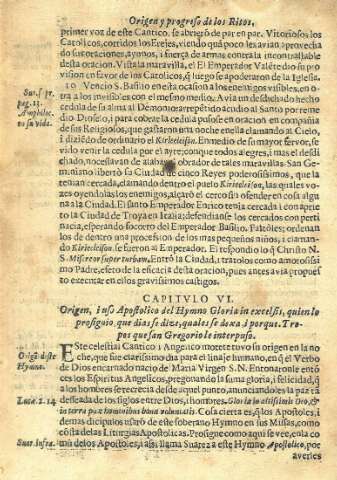 Origen y progreso de los Ritos,
primer voz de este Cantico. se abrieron de par en par. Vitoriosos los
Catolicos, corridos los Ereies, viendo quā poco les avian aprovecha
do sus oraciones, ayunos, i fuerça de armas contra la incontrastable
desta oracion. Vista la maravilla, el Emperador Valēte dio su pro
vision en favor de los Catolicos, q̄ luego se apoderaron de la Iglesia.
10 Vencio S. Basilio en esta ocasion a los enemigos visibles, en
otra a los invisibles con el mesmo medio. Avia un desdichado hecho
cedula de su alma al Demonio: arrepētido acudio al Santo por reme
dio. Dioselo, i para cobrar la cedula pusose en oracion en compañia
de sus Religiosos, que gastaron una noche en ella clamando al Cielo,
i diziēdo de ordinario el Kirieleison. Enmedio de su mayor fervor, se
vido venir la cedula por el ayre; con que todos alegres, i mas el desdi
chado, no cessavan de alabar al obrador de tales maravillas. San Ger
mano libertò su Ciudad de cinco Reyes poderosissimos, que la
tenian cercada, clamando dentro el pueblo Kirieleison, las quales vo
zes oyendolas los enemigos, alçarō el cerco sin ofender en cosa algu
na a la Ciudad. El santo Emperador Enrico tenia cercada i con aprie
to la Ciudad de Troya en Italia; defendianse los cercados con perti
nacia, esperando socorro del Emperador Basilio. Faltòles; ordenan
los de dentro una procession de los mas pequeños niños, i claman
do Kirieleison, se fueron al Emperador. El respondio lo q̄ Christo N.
S. Misereor super turbam. Entrò la Ciudad, i tratolos como amorosissi
mo Padre, efeto de la eficacia desta oracion, pues antes avia propues
to executar en ella gravissimos castigos.
CAPITVLO VI.
Origen, i uso Apostolico del Hymno Gloria in excelsis, quien lo
prosiguio, que dias se dize, quales se dexa. i porque. Tro-
pos que san Gregorio le interpuso.
Este celestial Cantico i Angelico motete tuvo su origen en la no
che, que fue clarissimo dia para el linaje humano, en q̄ el Verbo
de Dios encarnado nacio de Maria Virgen S. N. Entonaronle entō
ces los Espiritus Angelicos, pregonando la suma gloria, i felicidad, q̄
a los hombres se recrecia desde aquel punto, anunciandoles la paz tā
desseada de los siglos entre Dios, i hombres. Gloria in altissimis Deo, &
in terra pax hominibus bonæ voluntatis. Cosa cierta es, q̄ los Apostoles, i
demas dicipulos usarō de este soberano Hymno en sus Missas, como
consta de Liturgias Apostolicas. Prosigue como aqui se vee, en la co
mū de los Apostoles, i assi llama Suarez a este Hymno Apostolico, por
averles
Sur. f. pr.
pag. 13.
Amphiloc.
en su vida.
Origē deste
Hymno.
Lucæ. 2. 14
Suar. infra.